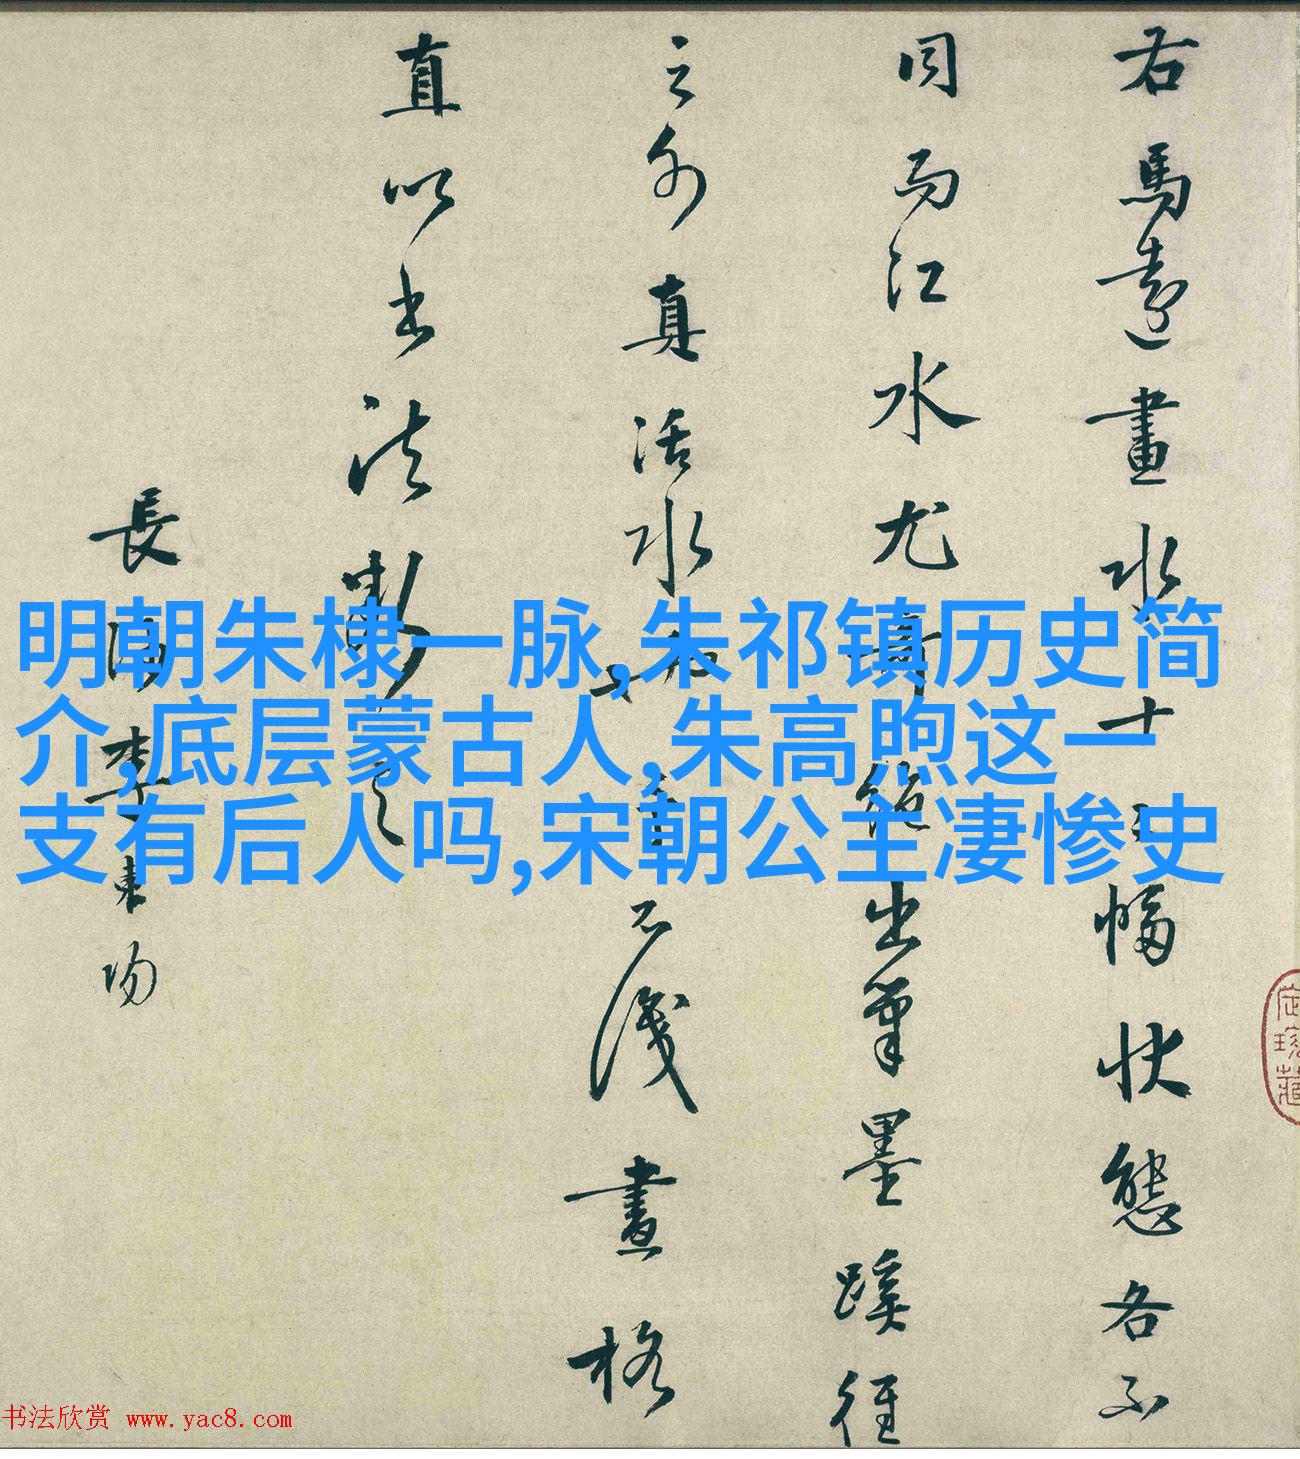 右馬遠畫水十二幅狀態各不
同而江水尤奇絶出筆墨蹊徑
之外真活水也不識畫格
直以書法斷之
長沙李東陽
明朝朱棣一脉,朱祁镇历史简
介,底层蒙古人,朱高煦这一
支有后人吗,宋朝公主凄惨史
书法欣赏 www.yac8.com